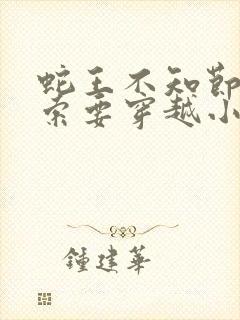 蛇王不知节
索要穿越小
鍾建華